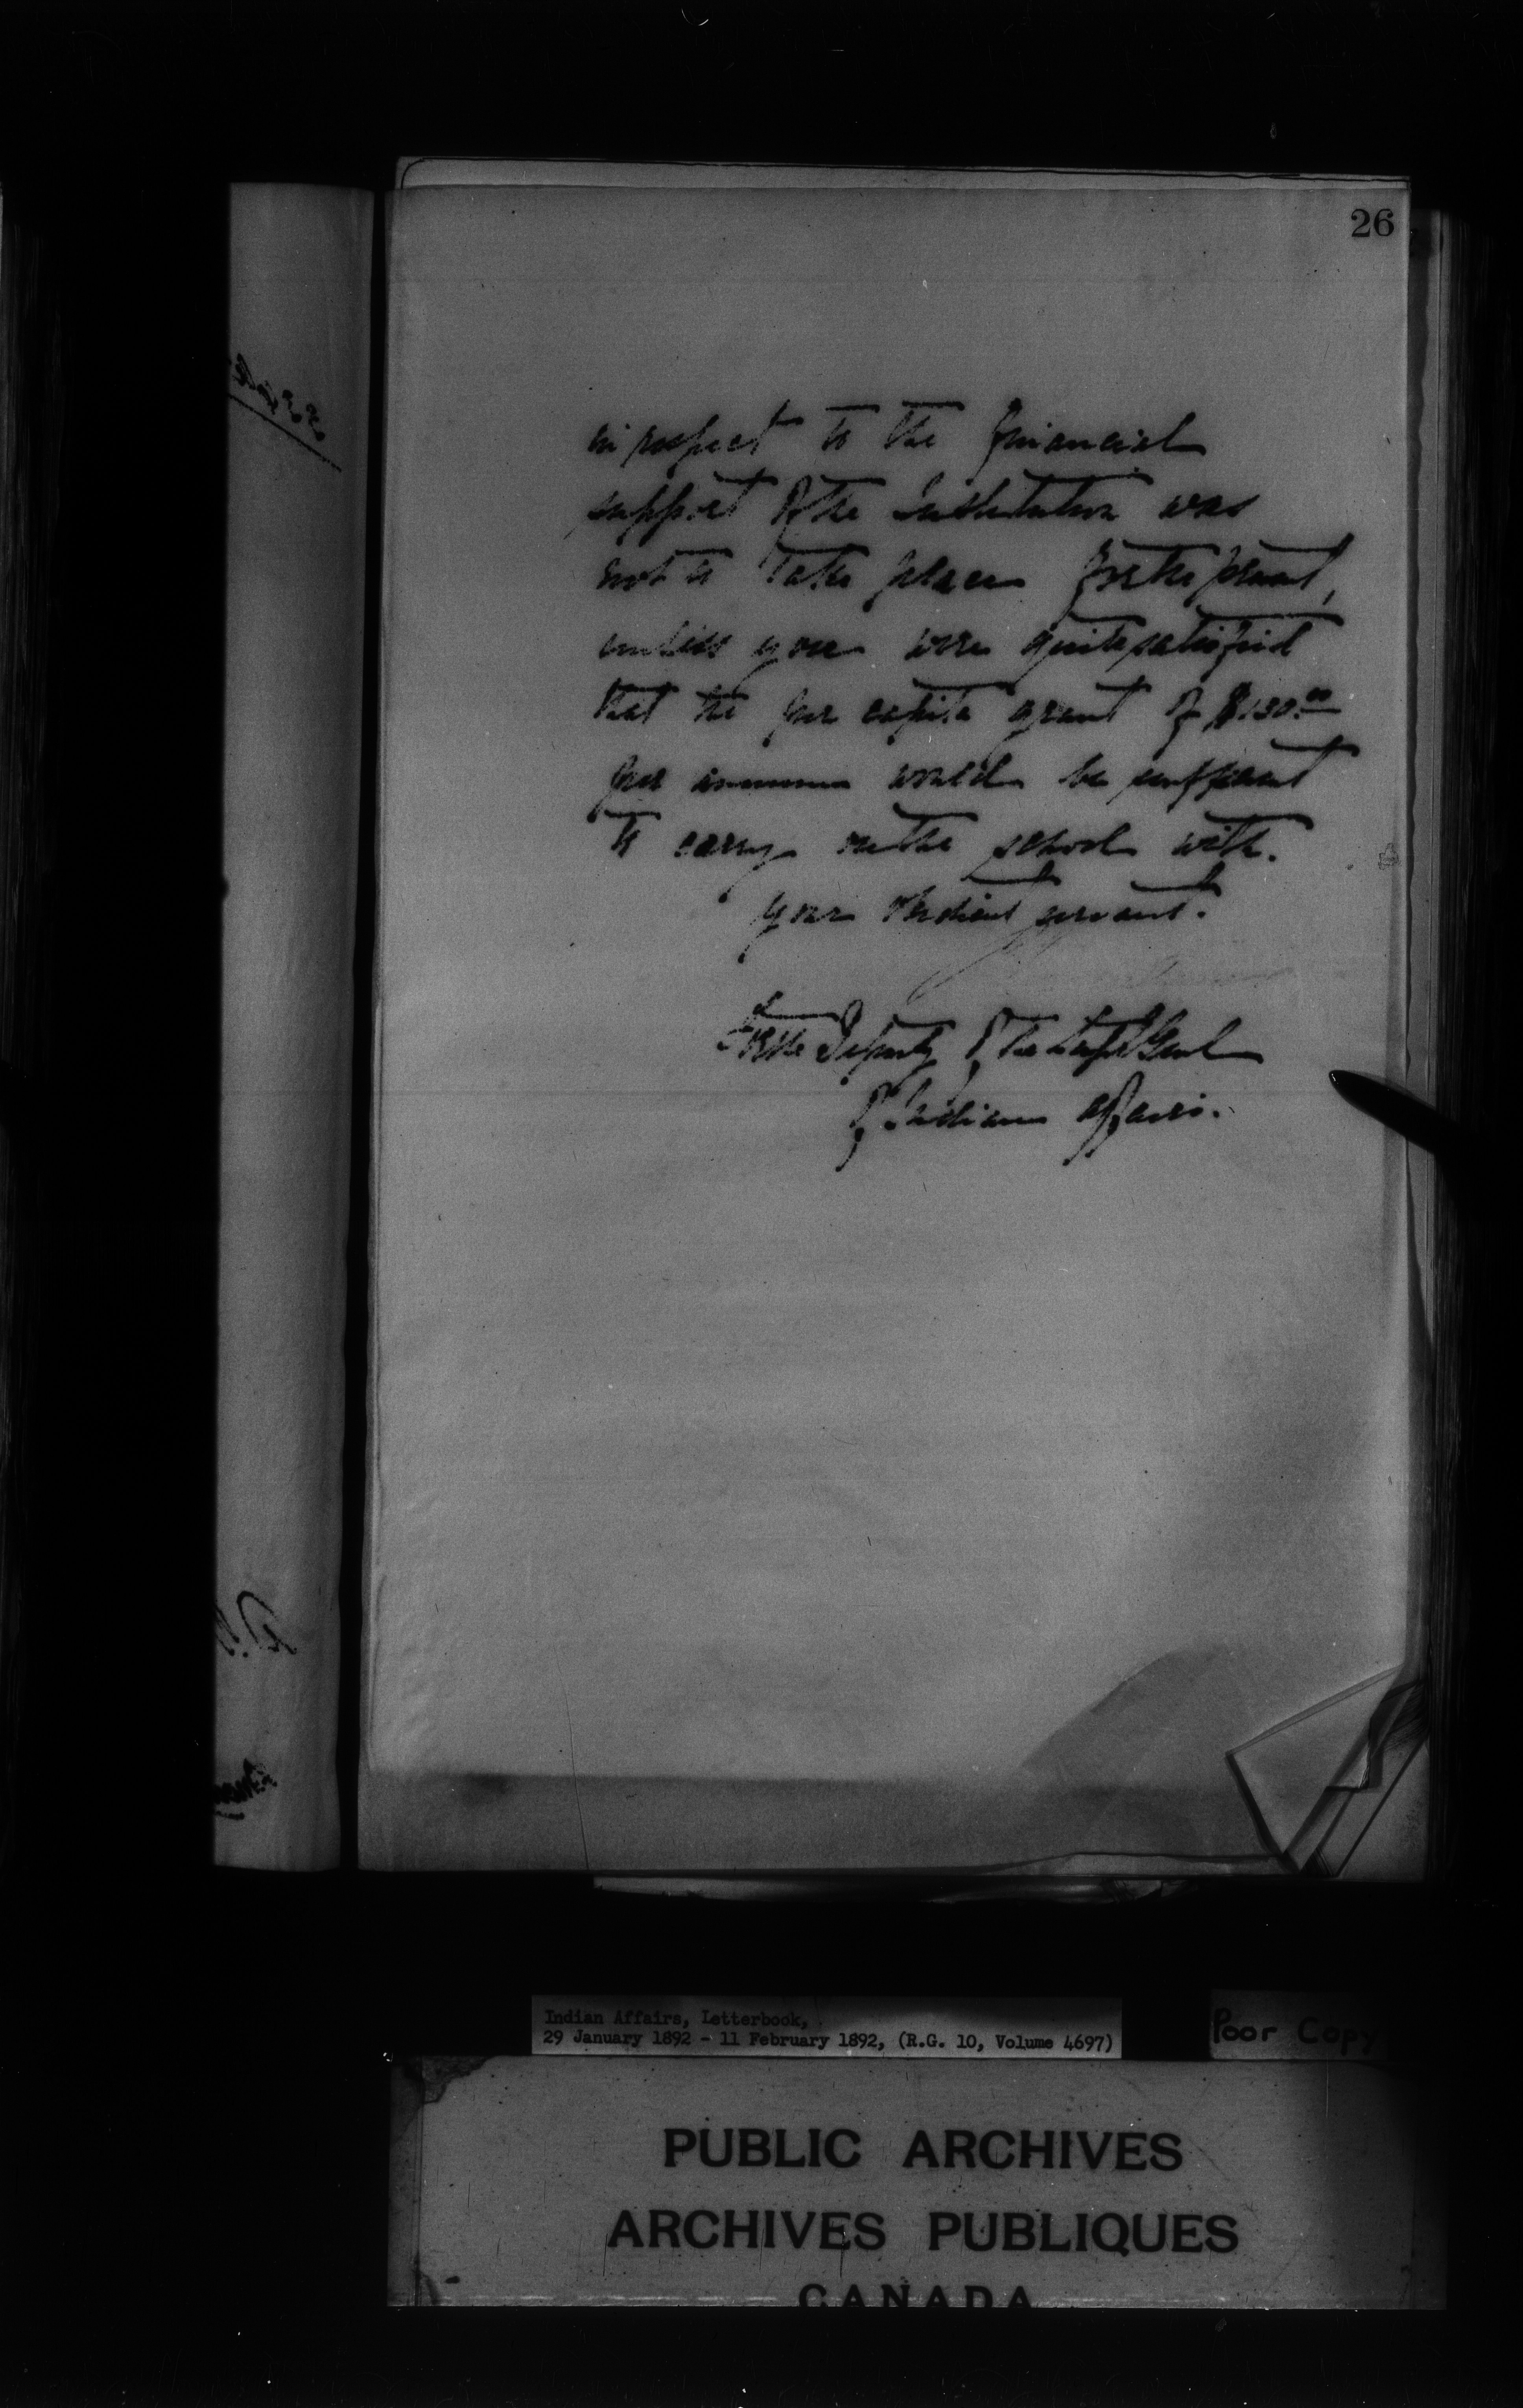 26
in respect to the financial
support of the Institution was
not to take place for the present,
unless you were quite satisfied
that the per capita grant of $130.00
per annum would be sufficient
to carry on the school with.
Your obedient servant.
For the Deputy of the Supt Genl
of Indian Affairs.
Indian Affairs, Letterbook,
29 January 1892 - 11 February 1892, (R.G. 10, Volume 4697)
Poor Copy
PUBLIC ARCHIVES
ARCHIVES PUBLIQUES
CANADA